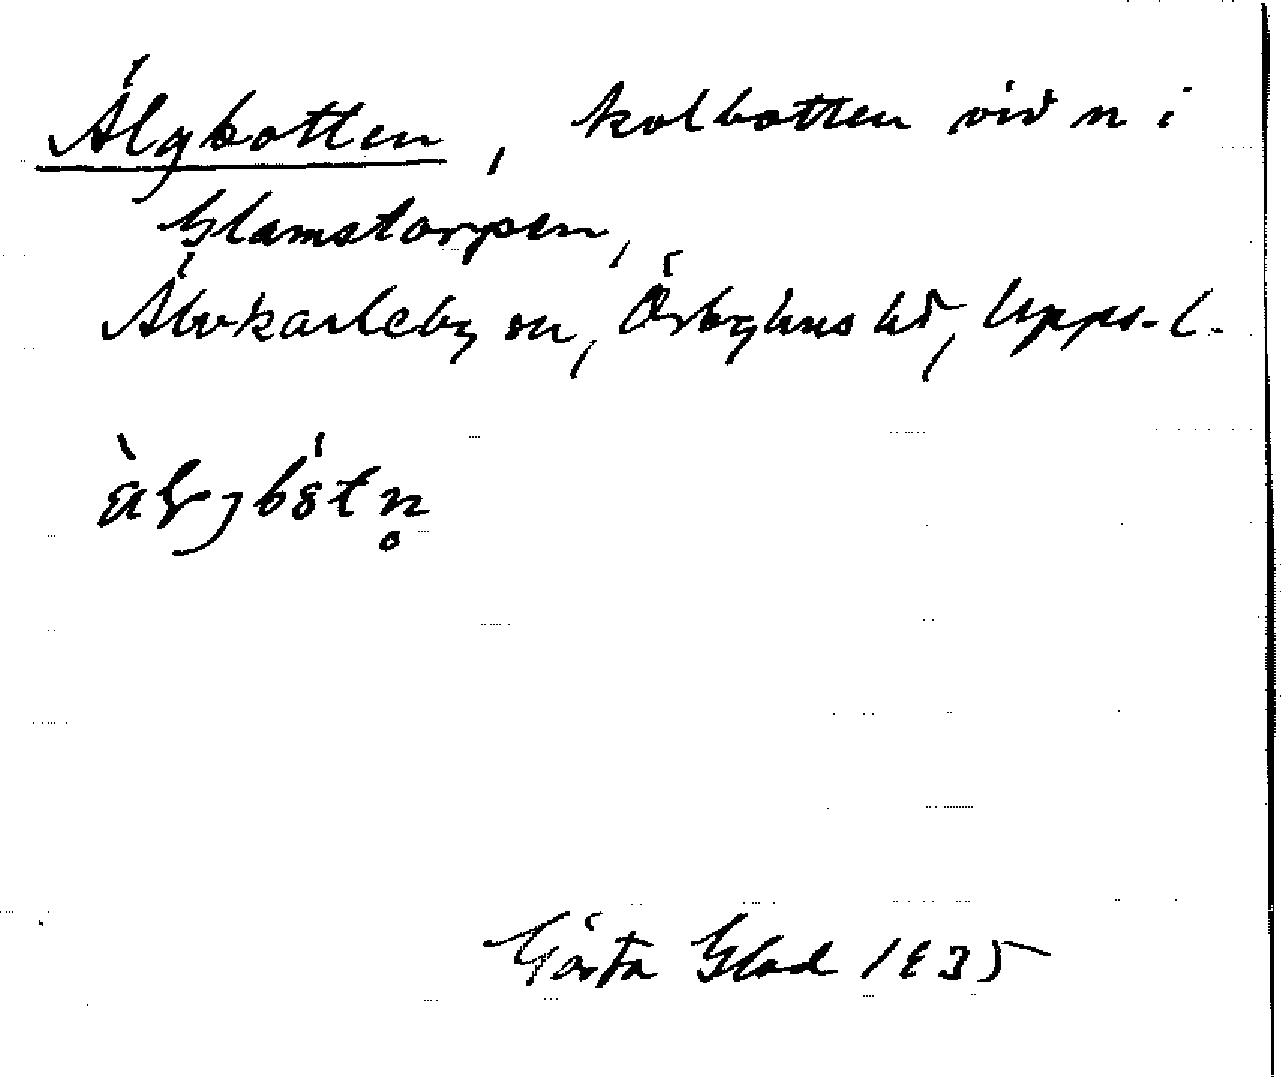 Älgbotten, kolbotten vid n i
Glamstorpen,
Älvkarleby sn, Örbyhus hd, Upps. l.
Gösta Glad 1935